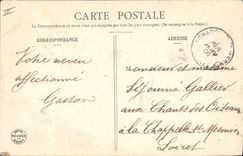 CARTE POSTALE
La Correspondance au recto n'est pas acceptée par tous les pays étrangers. (Se renseigner à la Poste.)
CORRESPONDANCE
ADRESSE
Votre neveu
affectionné
Gaston
Monsieur et madame
Séjourné Gallier
aux Chants des Oiseaux
à la Chapelle St Mesmin
Loiret